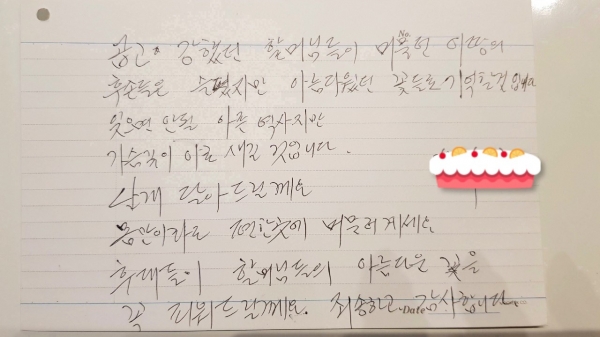 곱고 강했던 할머님들이 머물던 이땅의
후손들은 슬펐지만 아름다웠던 꽃들로 기억할건입니다
잊으면 안될 아픈 역사지만
가슴깊이 아로 새길 것입니다.
날개 달아드릴께요
몸만이라도 편한곳에 머물러계세요
후대들이 할머님들의 아름다운 꽃을
꼭 피워드릴께요. 죄송하고 감사합니다.
Date